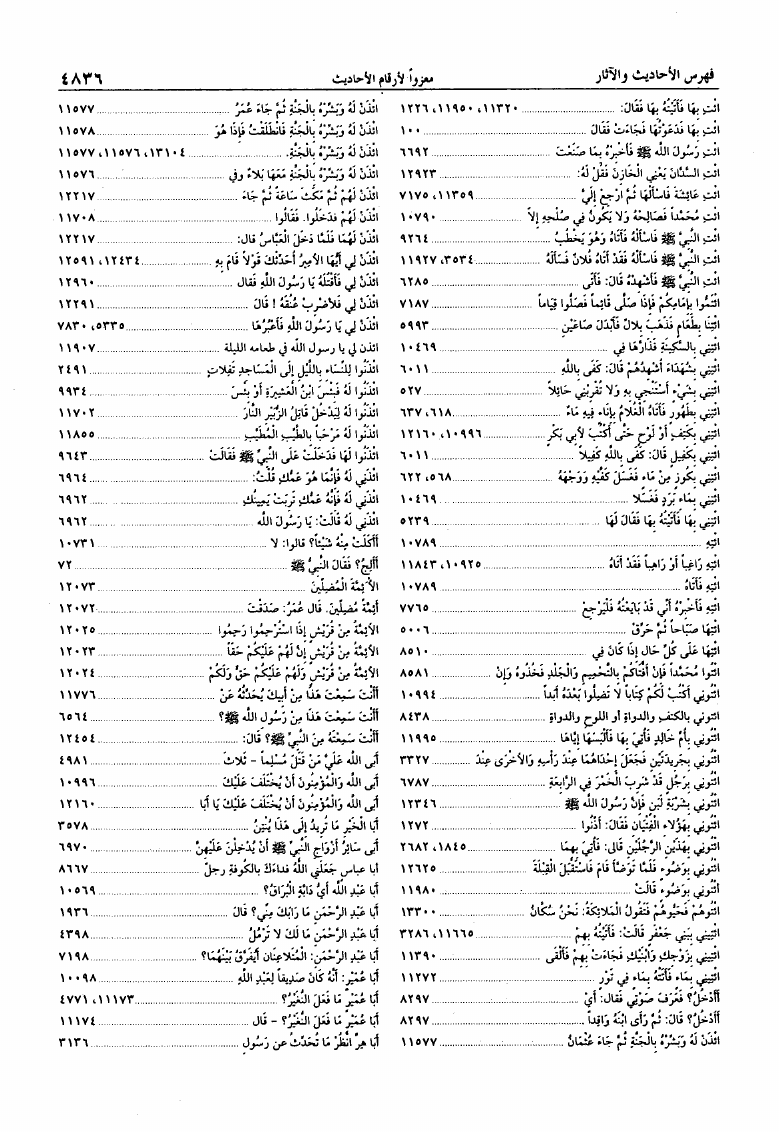 فهرس الأحاديث والآثار
معزواً لأرقام الأحاديث
٤٨٣٦
ائْتِ بِهَا فَأَتَيْتُهُ بِهَا فَقَالَ: ١١٣٢٠، ١١٩٥٠، ١٢٢٦
ائْتِ بِهَا فَدَعَوْتُهَا فَجَاءَتْ فَقَالَ ١٠٠
ائْتِ رَسُولَ اللَّهِ ﷺ فَأَخْبِرْهُ بِمَا صَنَعْتَ ٦٦٩٢
ائْتِ السُّدَّانَ يَعْنِي الْخَازِنَ فَقُلْ لَهُ: ١٢٩٢٣
ائْتِ عَائِشَةَ فَاسْأَلْهَا ثُمَّ ارْجِعْ إِلَيَّ ١١٣٥٩، ٧١٧٥
ائْتِ مُحَمَّداً فَصَالِحْهُ وَلَا يَكُونُ فِي صُلْحِهِ إِلَّا ١٠٧٩٠
ائْتِ النَّبِيَّ ﷺ فَاسْأَلْهُ فَأَتَاهُ وَهُوَ يَخْطُبُ ٩٢٦٤
ائْتِ النَّبِيَّ ﷺ فَاسْأَلْهُ فَقَدْ أَتَاهُ فُلَانٌ فَسَأَلَهُ ٣٥٣٤، ١١٩٢٧
ائْتِ النَّبِيَّ ﷺ فَأَشْهِدْهُ قَالَ: فَأَتَى ٦٢٨٥
ائْتَمُّوا بِإِمَامِكُمْ فَإِذَا صَلَّى قَائِماً فَصَلُّوا قِيَاماً ٧١٨٧
ائْتِنَا بِطَعَامٍ فَذَهَبَ بِلَالٌ فَأَبْدَلَ صَاعَيْنِ ٥٩٩٣
ائْتِنِي بِالسِّكِّينَةِ فَذَارَهَا فِي ١٠٤٦٩
ائْتِنِي بِشُهَدَاءَ أُشْهِدُهُمْ قَالَ: كَفَى بِاللَّهِ ٦٠١١
ائْتِنِي بِشَيْءٍ أَسْتَنْجِي بِهِ وَلَا تُقْرِبْنِي حَائِلاً ٥٢٧
ائْتِنِي بِطَهُورٍ فَأَتَاهُ الْغُلَامُ بِإِنَاءٍ فِيهِ مَاءٌ ٦١٨، ٦٣٧
ائْتِنِي بِكَتِفٍ أَوْ لَوْحٍ حَتَّى أَكْتُبَ لِأَبِي بَكْرٍ ١٠٩٩٦، ١٢١٦٠
ائْتِنِي بِكَفِيلٍ قَالَ: كَفَى بِاللَّهِ كَفِيلاً ٦٠١١
ائْتِنِي بِكُوزٍ مِنْ مَاءٍ فَغَسَلَ كَفَّيْهِ وَوَجْهَهُ ٥٦٨، ٦٢٢
ائْتِنِي بِمَاءٍ بَرَدٍ فَغَسَلَا ١٠٤٦٩
ائْتِنِي بِهَا فَأَتَيْتُهُ بِهَا فَقَالَ لَهَا ٥٢٣٩
ائْتِهِ ١٠٧٨٩
ائْتِهِ رَاغِباً أَوْ رَاهِباً فَقَدْ أَتَاهُ ١٠٩٢٥، ١١٨٤٣
ائْتِهِ فَأَتَاهُ ١٠٧٨٩
ائْتِهِ فَأَخْبِرْهُ أَنِّي قَدْ بَايَعْتُهُ فَلْيَرْجِعْ ٧٧٦٥
ائْتِهَا صَبَاحاً ثُمَّ حَرِّقْ ٥٠٠٦
ائْتِهَا عَلَى كُلِّ حَالٍ إِذَا كَانَ فِي ٨٥١٠
ائْتُوا مُحَمَّداً فَإِنْ أَفْتَاكُمْ بِالتَّحْمِيمِ وَالْجَلْدِ فَخُذُوهُ وَإِنْ ٨٥٨١
ائْتُونِي أَكْتُبْ لَكُمْ كِتَاباً لَا تَضِلُّوا بَعْدَهُ أَبَداً ١٠٩٩٤
ائتوني بالكتف والدواة أو اللوح والدواة ٨٤٣٨
ائْتُونِي بِأُمِّ خَالِدٍ فَأُتِيَ بِهَا فَأَلْبَسَهَا إِيَّاهَا ١١٩٩٥
ائْتُونِي بِجَرِيدَتَيْنِ فَجَعَلَ إِحْدَاهُمَا عِنْدَ رَأْسِهِ وَالْأُخْرَى عِنْدَ ٣٣٢٧
ائْتُونِي بِرَجُلٍ قَدْ شَرِبَ الْخَمْرَ فِي الرَّابِعَةِ ٦٧٨٧
ائْتُونِي بِشَرْبَةِ لَبَنٍ فَإِنَّ رَسُولَ اللَّهِ ﷺ ١٢٣٤٦
ائْتُونِي بِهَؤُلَاءِ الْفِتْيَانِ فَقَالَ: ادْنُوا ١٢٧٢
ائْتُونِي بِهَذَيْنِ الرَّجُلَيْنِ قَالَ: فَأُتِيَ بِهِمَا ١٨٤٥، ٢٦٨٢
ائْتُونِي بِوَضُوءٍ فَلَمَّا تَوَضَّأَ قَامَ فَاسْتَقْبَلَ الْقِبْلَةَ ١٢٦٢٥
ائْتُونِي بِوَضُوءٍ قَالَتْ ١١٩٨٠
ائْتُوهُمْ فَحَيُّوهُمْ فَتَقُولُ الْمَلَائِكَةُ: نَحْنُ سُكَّانُ ١٣٣٠٠
ائْتِينِي بِبَنِي جَعْفَرٍ قَالَتْ: فَأَتَيْتُهُ بِهِمْ ١١٦٦٥، ٣٢٨٦
ائْتِينِي بِزَوْجِكِ وَابْنَيْكِ فَجَاءَتْ بِهِمْ فَأَلْقَى ١١٣٩٠
ائْتِينِي بِمَاءٍ فَأَتَتْهُ بِمَاءٍ فِي تَوْرٍ ١١٢٧٢
أَأَدْخُلُ؟ فَعَرَفَ صَوْتِي فَقَالَ: أَيْ ٨٢٩٧
أَأَدْخُلُ؟ قَالَ: ثُمَّ رَأَى ابْنَهُ وَاقِداً ٨٢٩٧
ائْذَنْ لَهُ وَبَشِّرْهُ بِالْجَنَّةِ ثُمَّ جَاءَ عُثْمَانُ ١١٥٧٧
ائْذَنْ لَهُ وَبَشِّرْهُ بِالْجَنَّةِ ثُمَّ جَاءَ عُمَرُ ١١٥٧٧
ائْذَنْ لَهُ وَبَشِّرْهُ بِالْجَنَّةِ فَانْطَلَقْتُ فَإِذَا هُوَ ١١٥٧٨
ائْذَنْ لَهُ وَبَشِّرْهُ بِالْجَنَّةِ. ١٣١٠٤، ١١٥٧٦، ١١٥٧٧
ائْذَنْ لَهُ وَبَشِّرْهُ بِالْجَنَّةِ مَعَهَا بَلَاءٌ وفي ١١٥٧٦
ائْذَنْ لَهُمْ ثُمَّ مَكَثَ سَاعَةً ثُمَّ جَاءَ ١٢٢١٧
ائْذَنْ لَهُمْ فَدَخَلُوا. فَقَالُوا ١١٧٠٨
ائْذَنْ لَهُمَا فَلَمَّا دَخَلَ الْعَبَّاسُ قال: ١٢٢١٧
ائْذَنْ لِي أَيُّهَا الْأَمِيرُ أُحَدِّثْكَ قَوْلاً قَامَ بِهِ ١٢٤٣٤، ١٢٥٩١
ائْذَنْ لِي فَأَقْتُلَهُ يَا رَسُولَ اللَّهِ فقال ١٢٩٦٠
ائْذَنْ لِي فَلأَضْرِبْ عُنُقَهُ! قَالَ ١٢٢٩١
ائْذَنْ لِي يَا رَسُولَ اللَّهِ فَأَعْبُرَهَا ٥٣٣٥، ٧٨٣٠
ائذن لي يا رسول الله في طعامه الليلة ١١٩٠٧
ائْذَنُوا لِلنِّسَاءِ بِاللَّيْلِ إِلَى الْمَسَاجِدِ تَفِلَاتٍ ٢٤٩١
ائْذَنُوا لَهُ فَبِئْسَ ابْنُ الْعَشِيرَةِ أَوْ بِئْسَ ٩٩٣٤
ائْذَنُوا لَهُ لِيَدْخُلْ قَاتِلُ الزُّبَيْرِ النَّارَ ١١٧٠٢
ائْذَنُوا لَهُ مَرْحَباً بِالطَّيِّبِ الْمُطَيَّبِ ١١٨٥٥
ائْذَنُوا لَهَا فَدَخَلَتْ عَلَى النَّبِيِّ ﷺ فَقَالَتْ ٩٦٤٣
ائْذَنِي لَهُ فَإِنَّمَا هُوَ عَمُّكِ قُلْتُ: ٦٩٦٤
ائْذَنِي لَهُ فَإِنَّهُ عَمُّكِ تَرِبَتْ يَمِينُكِ ٦٩٦٢
ائْذَنِي لَهُ قَالَتْ: يَا رَسُولَ اللَّهِ ٦٩٦٢
أَأَكَلْتَ مِنْهُ شَيْئاً؟ قالوا: لا ١٠٧٣١
أَأَلِجُ؟ فَقَالَ النَّبِيُّ ﷺ ٧٢
الْأَئِمَّةَ الْمُضِلِّينَ ١٢٠٧٣
أَئِمَّةً مُضِلِّينَ. قال عُمَرُ: صَدَقْتَ ١٢٠٧٢
الْأَئِمَّةُ مِنْ قُرَيْشٍ إِذَا اسْتُرْحِمُوا رَحِمُوا ١٢٠٢٥
الْأَئِمَّةُ مِنْ قُرَيْشٍ إِنَّ لَهُمْ عَلَيْكُمْ حَقاً ١٢٠٢٣
الْأَئِمَّةُ مِنْ قُرَيْشٍ وَلَهُمْ عَلَيْكُمْ حَقٌّ وَلَكُمْ ١٢٠٢٤
أَأَنْتَ سَمِعْتَ هَذَا مِنْ أَبِيكَ يُحَدِّثُهُ عَنْ ١١٧٧٦
أَأَنْتَ سَمِعْتَ هَذَا مِنْ رَسُولِ اللَّهِ ﷺ؟ ٦٥٦٤
أَأَنْتَ سَمِعْتَهُ مِنَ النَّبِيِّ ﷺ؟ قَالَ: ١٢٤٥٤
أَبَى اللَّهُ عَلَيَّ مَنْ قَتَلَ مُسْلِماً - ثَلَاثَ ٤٩٨١
أَبَى اللَّهُ وَالْمُؤْمِنُونَ أَنْ يُخْتَلَفَ عَلَيْكَ ١٠٩٩٦
أَبَى اللَّهُ وَالْمُؤْمِنُونَ أَنْ يُخْتَلَفَ عَلَيْكَ يَا أَبَا ١٢١٦٠
أَبَا الْخَيْرِ مَا تُرِيدُ إِلَى هَذَا يُنْتِنُ ٣٥٧٨
أَبَى سَائِرُ أَزْوَاجِ النَّبِيِّ ﷺ أَنْ يُدْخِلْنَ عَلَيْهِنَّ ٦٩٧٠
أبا عباس جَعَلَنِي اللَّهُ فداءك بالكوفة رجلٌ ٨٦٦٧
أَبَا عَبْدِ اللَّهِ أَيُّ دَابَّةٍ الْبُرَاقُ؟ ١٠٥٦٩
أَبَا عَبْدِ الرَّحْمَنِ مَا رَابَكَ مِنِّي؟ قالَ ١٩٣٦
أَبَا عَبْدِ الرَّحْمَنِ مَا لَكَ لَا تَرْمُلُ ٤٣٩٨
أَبَا عَبْدِ الرَّحْمَنِ: الْمُتَلَاعِنَانِ أَيُفَرَّقُ بَيْنَهُمَا؟ ٧١٩٨
أَبَا عُمَيْرٍ: أَنَّهُ كَانَ صَدِيقاً لِعَبْدِ اللَّهِ ١٠٠٩٨
أَبَا عُمَيْرٍ مَا فَعَلَ النُّغَيْرُ؟ ١١١٧٣، ٤٧٧١
أَبَا عُمَيْرٍ مَا فَعَلَ النُّغَيْرُ؟ - قال ١١١٧٤
أَبَا هِرٍّ انْظُرْ مَا تُحَدِّثُ عن رَسُولِ ٣١٣٦